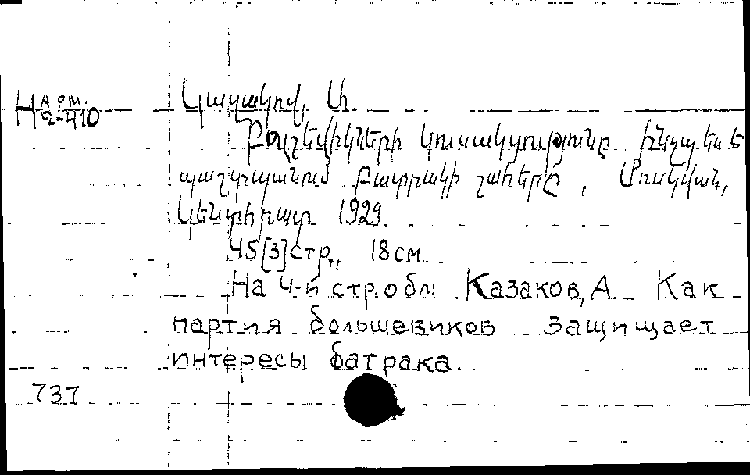 Н арм. 2-410
Կազակով, Ա.
Բոլշեվիկների կուսակցությունը ինչպես է
պաշտպանում բատրակի շահերը, Մոսկվան,
Կենտիրատ 1929.
45[3]стр., 18 см
На 4-й стр обл Казаков, А Как
партия большевиков защищает
интересы батрака.
737